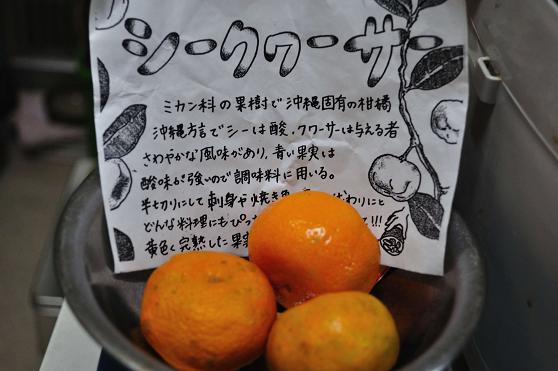 シークヮーサー
ミカン科の果樹で沖縄固有の柑橘
沖縄方言でシーは酸、クワーサーは与える者
さわやかな風味があり、青い果実は
酸味が強いので調味料に用いる。
半切りにして刺身や焼き わりにと
どんな料理にもぴっ !!!
黄色く完熟した果実